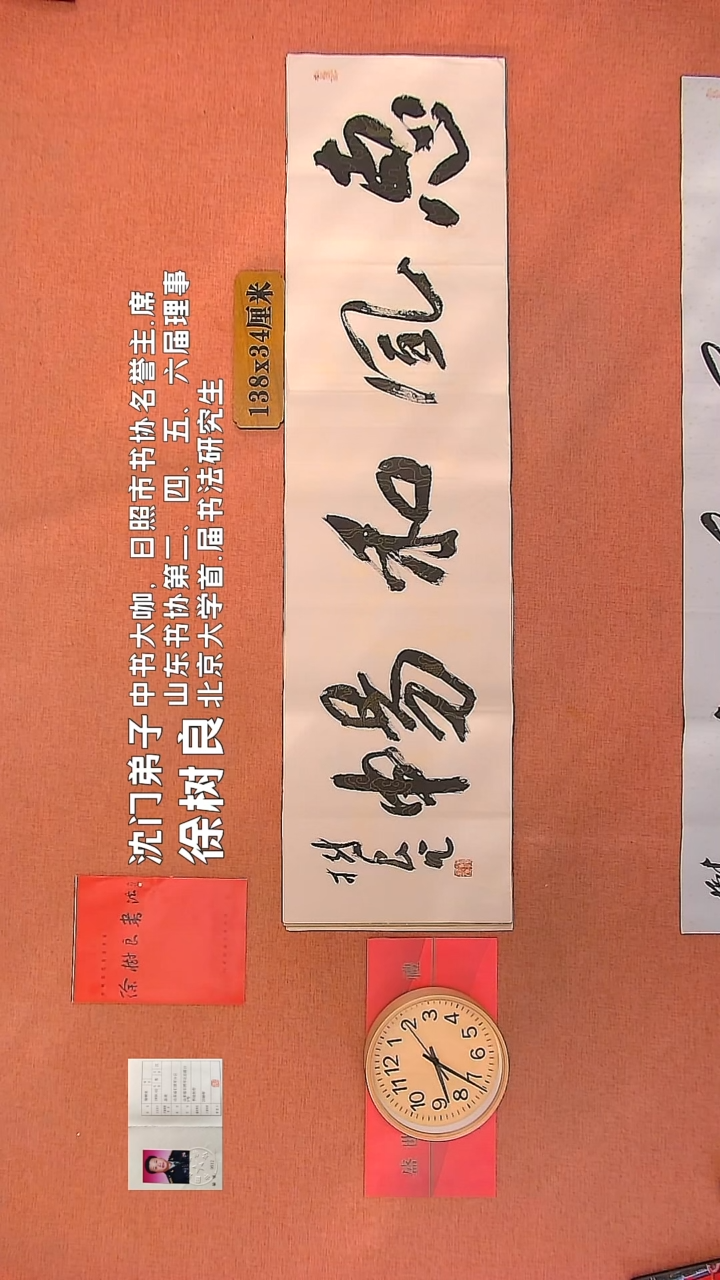 沈门弟子 中书大咖，日照市书协名誉主.席
山东书协第三、四、五、六届理事
徐树良 北京大学首.届书法研究生
138x34厘米
惠风和畅
树良
徐树良书法
12
1
2
3
4
5
6
7
8
9
10
11